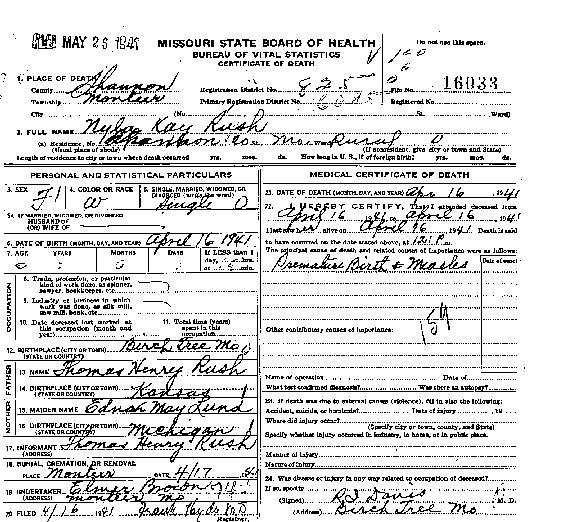 MAY 25 1941
MISSOURI STATE BOARD OF HEALTH
BUREAU OF VITAL STATISTICS
CERTIFICATE OF DEATH
Do not use this space.
1. PLACE OF DEATH
County Shannon Registration District No. 825 File No. 16033
Township Montier Primary Registration District No. Registered No.
City (No. St. Ward)
2. FULL NAME Nyloa Kay Rush
(a) Residence, No. Shannon Co. Mo. Rural
(Usual place of abode) (If nonresident, give city or town and State)
Length of residence in city or town where death occurred yrs. mos. ds. How long in U.S., if of foreign birth? yrs. mos. ds.
PERSONAL AND STATISTICAL PARTICULARS
3. SEX F 4. COLOR OR RACE W 5. SINGLE, MARRIED, WIDOWED, OR DIVORCED (write the word) Single
5A. IF MARRIED, WIDOWED, OR DIVORCED
HUSBAND OF
(OR) WIFE OF
6. DATE OF BIRTH (MONTH, DAY, AND YEAR) April 16 1941
7. AGE YEARS MONTHS DAYS If LESS than 1
8. Trade, profession, or particular
kind of work done, as spinner,
sawyer, bookkeeper, etc.
9. Industry or business in which
work was done, as silk mill,
saw mill, bank, etc.
10. Date deceased last worked at
this occupation (month and
year)
11. Total time (years)
spent in this
occupation
OCCUPATION
12. BIRTHPLACE (CITY OR TOWN) Birch Tree Mo
(STATE OR COUNTRY)
FATHER
13. NAME Thomas Henry Rush
14. BIRTHPLACE (CITY OR TOWN) Kansas
(STATE OR COUNTRY)
MOTHER
15. MAIDEN NAME Ednah May Lund
16. BIRTHPLACE (CITY OR TOWN) Michigan
(STATE OR COUNTRY)
17. INFORMANT Thomas Henry Rush
(ADDRESS)
18. BURIAL, CREMATION, OR REMOVAL
PLACE Montier DATE 4/17 41
19. UNDERTAKER Elmer Brown
(ADDRESS) Montier Mo
20. FILED 4/16 1941 Frank Hyde M.D.
Registrar.
MEDICAL CERTIFICATE OF DEATH
21. DATE OF DEATH (MONTH, DAY, AND YEAR) Apr 16 1941
22. I HEREBY CERTIFY, That I attended deceased from
April 16 1941 to April 16 1941
I last saw alive on April 16 1941 Death is said
to have occurred on the date stated above, at
The principal cause of death and related causes of importance were as follows:
Date of onset
Premature Birth & Measles
159
Other contributory causes of importance:
Name of operation Date of
What test confirmed diagnosis? Was there an autopsy?
23. If death was due to external causes (violence), fill in also the following:
Accident, suicide, or homicide? Date of injury 19
Where did injury occur?
(Specify city or town, county, and State)
Specify whether injury occurred in industry, in home, or in public place.
Manner of injury
Nature of injury
24. Was disease or injury in any way related to occupation of deceased?
If so, specify
(Signed) R.J. Davis M.D.
(Address) Birch Tree Mo